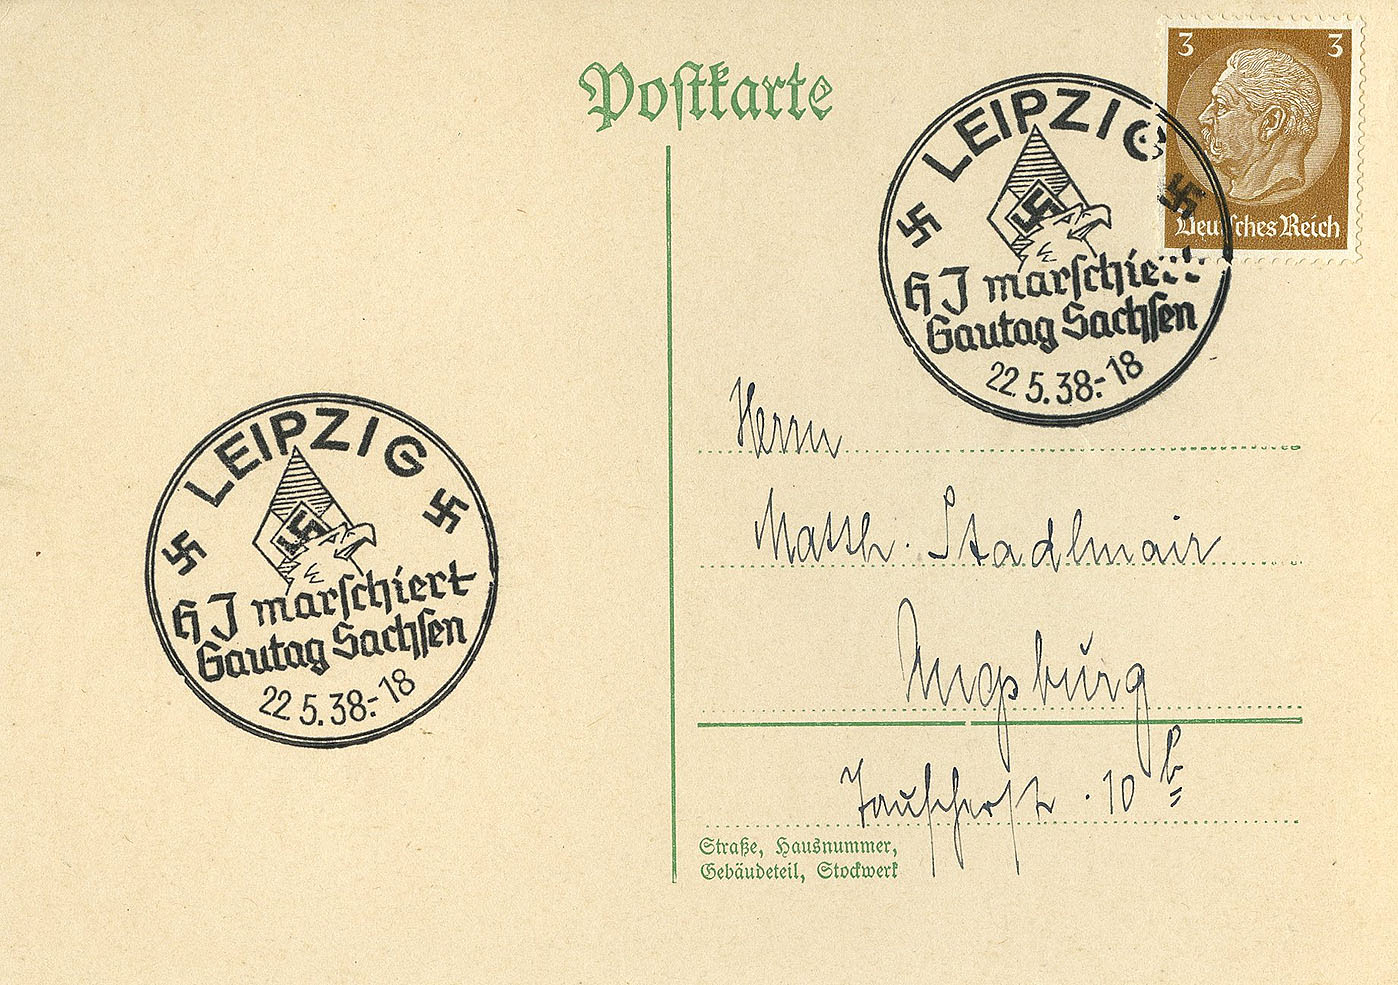 Postkarte
3 3
Deutsches Reich
LEIPZIG
HJ marschiert
Gautag Sachsen
22.5.38.-18
LEIPZIG
HJ marschiert
Gautag Sachsen
22.5.38.-18
Herrn
Matth. Stadlmair
Augsburg
10 b
Straße, Hausnummer,
Gebäudeteil, Stockwerk